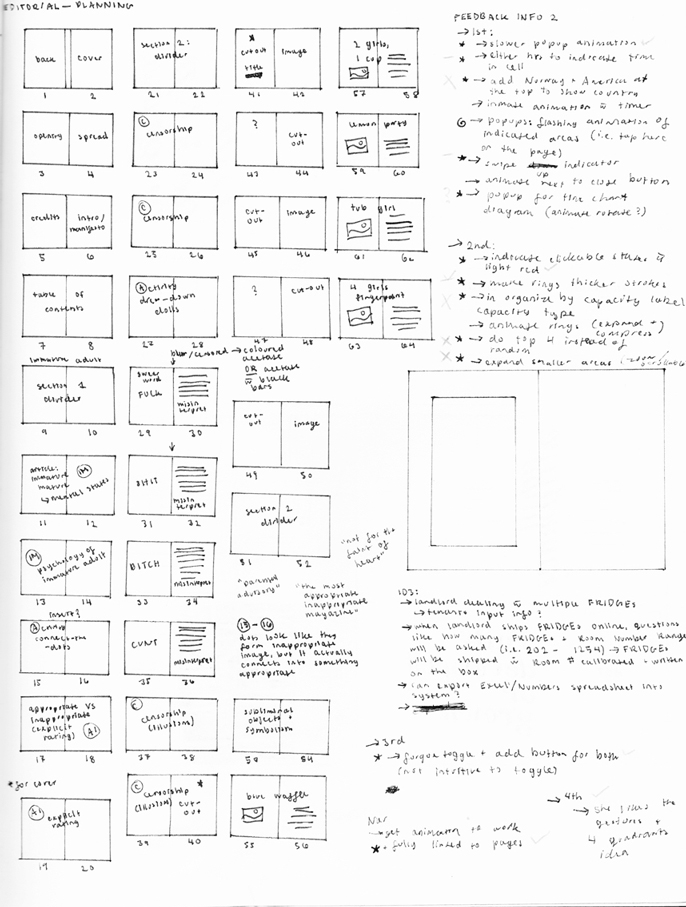 EDITORIAL - PLANNING
back cover
1 2
opening spread
3 4
credits intro/
manifesto
5 6
table of
contents
7 8
immature adult
section 1
divider
9 10
article:
immature
mature
→ mental states
IM
11 12
IM
psychology of
immature adult
13 14
insert?
Activity
connect-the
-dots
15 16
appropriate vs
inappropriate
(explicit
rating) AI
17 18
*for cover
AI explicit
rating
19 20
section 2:
divider
21 22
C
censorship
23 24
C
censorship
25 26
Activity
draw-down
dolls
27 28
blur/censored → coloured
acetate
OR acetate
w black
bars
swear
word
FUCK
misinterpret
29 30
SHIT
misinterpret
31 32
BITCH
misinterpret
33 34
CUNT
misinterpret
35 36
C
censorship
(illusions)
37 38
C *
censorship
(illusions) cut-
out
39 40
*
cutout image
title
41 42
? cut-
out
43 44
cut-
out image
45 46
? cut-out
47 48
cut-
out image
49 50
section 2
divider
51 52
"not for the
faint of
heart"
"parental
advisory"
"the most
appropriate
inappropriate
magazine"
15 - 16
dots look like they
form inappropriate
image, but it actually
connects into something
appropriate
subliminal
objects +
symbolism
53 54
blue waffle
55 56
2 girls,
1 cup
57 58
lemon party
59 60
tub girl
61 62
4 girls
fingerpaint
63 64
FEEDBACK INFO 2
→ 1st:
* → slower popup animation
* → either hrs to indicate time
in cell
* → add Norway + America at
the top to show country
→ inmate animation w timer
→ popups: flashing animation of
indicated areas (i.e. tap here
on the page)
* → swipe up indicator
→ animate next to close button
* → popup for time chart
diagram (animate rotate?)
→ 2nd:
* → indicate clickable states w
light red
* → make rings thicker strokes
* → in organize by capacity label
capacity type
→ animate rings (expand +
compress)
* → do top 4 instead of
random
* → expand smaller areas
ID3:
→ landlord dealing w multiple FRIDGEs
→ tenants input info?
→ when landlord ships FRIDGEs online, questions
like how many FRIDGEs + Room Number Range
will be asked (i.e. 202 - 1254) → FRIDGEs
will be shipped w Room # calibrated + written
on the box
→ can export Excel/Numbers spreadsheet into
system?
→ 3rd
* → forgoe toggle + add button for both
(not intuitive to toggle)
→ 4th
→ she likes the
gestures +
4 quadrants
idea
→ get animation to work
* → fully linked to pages